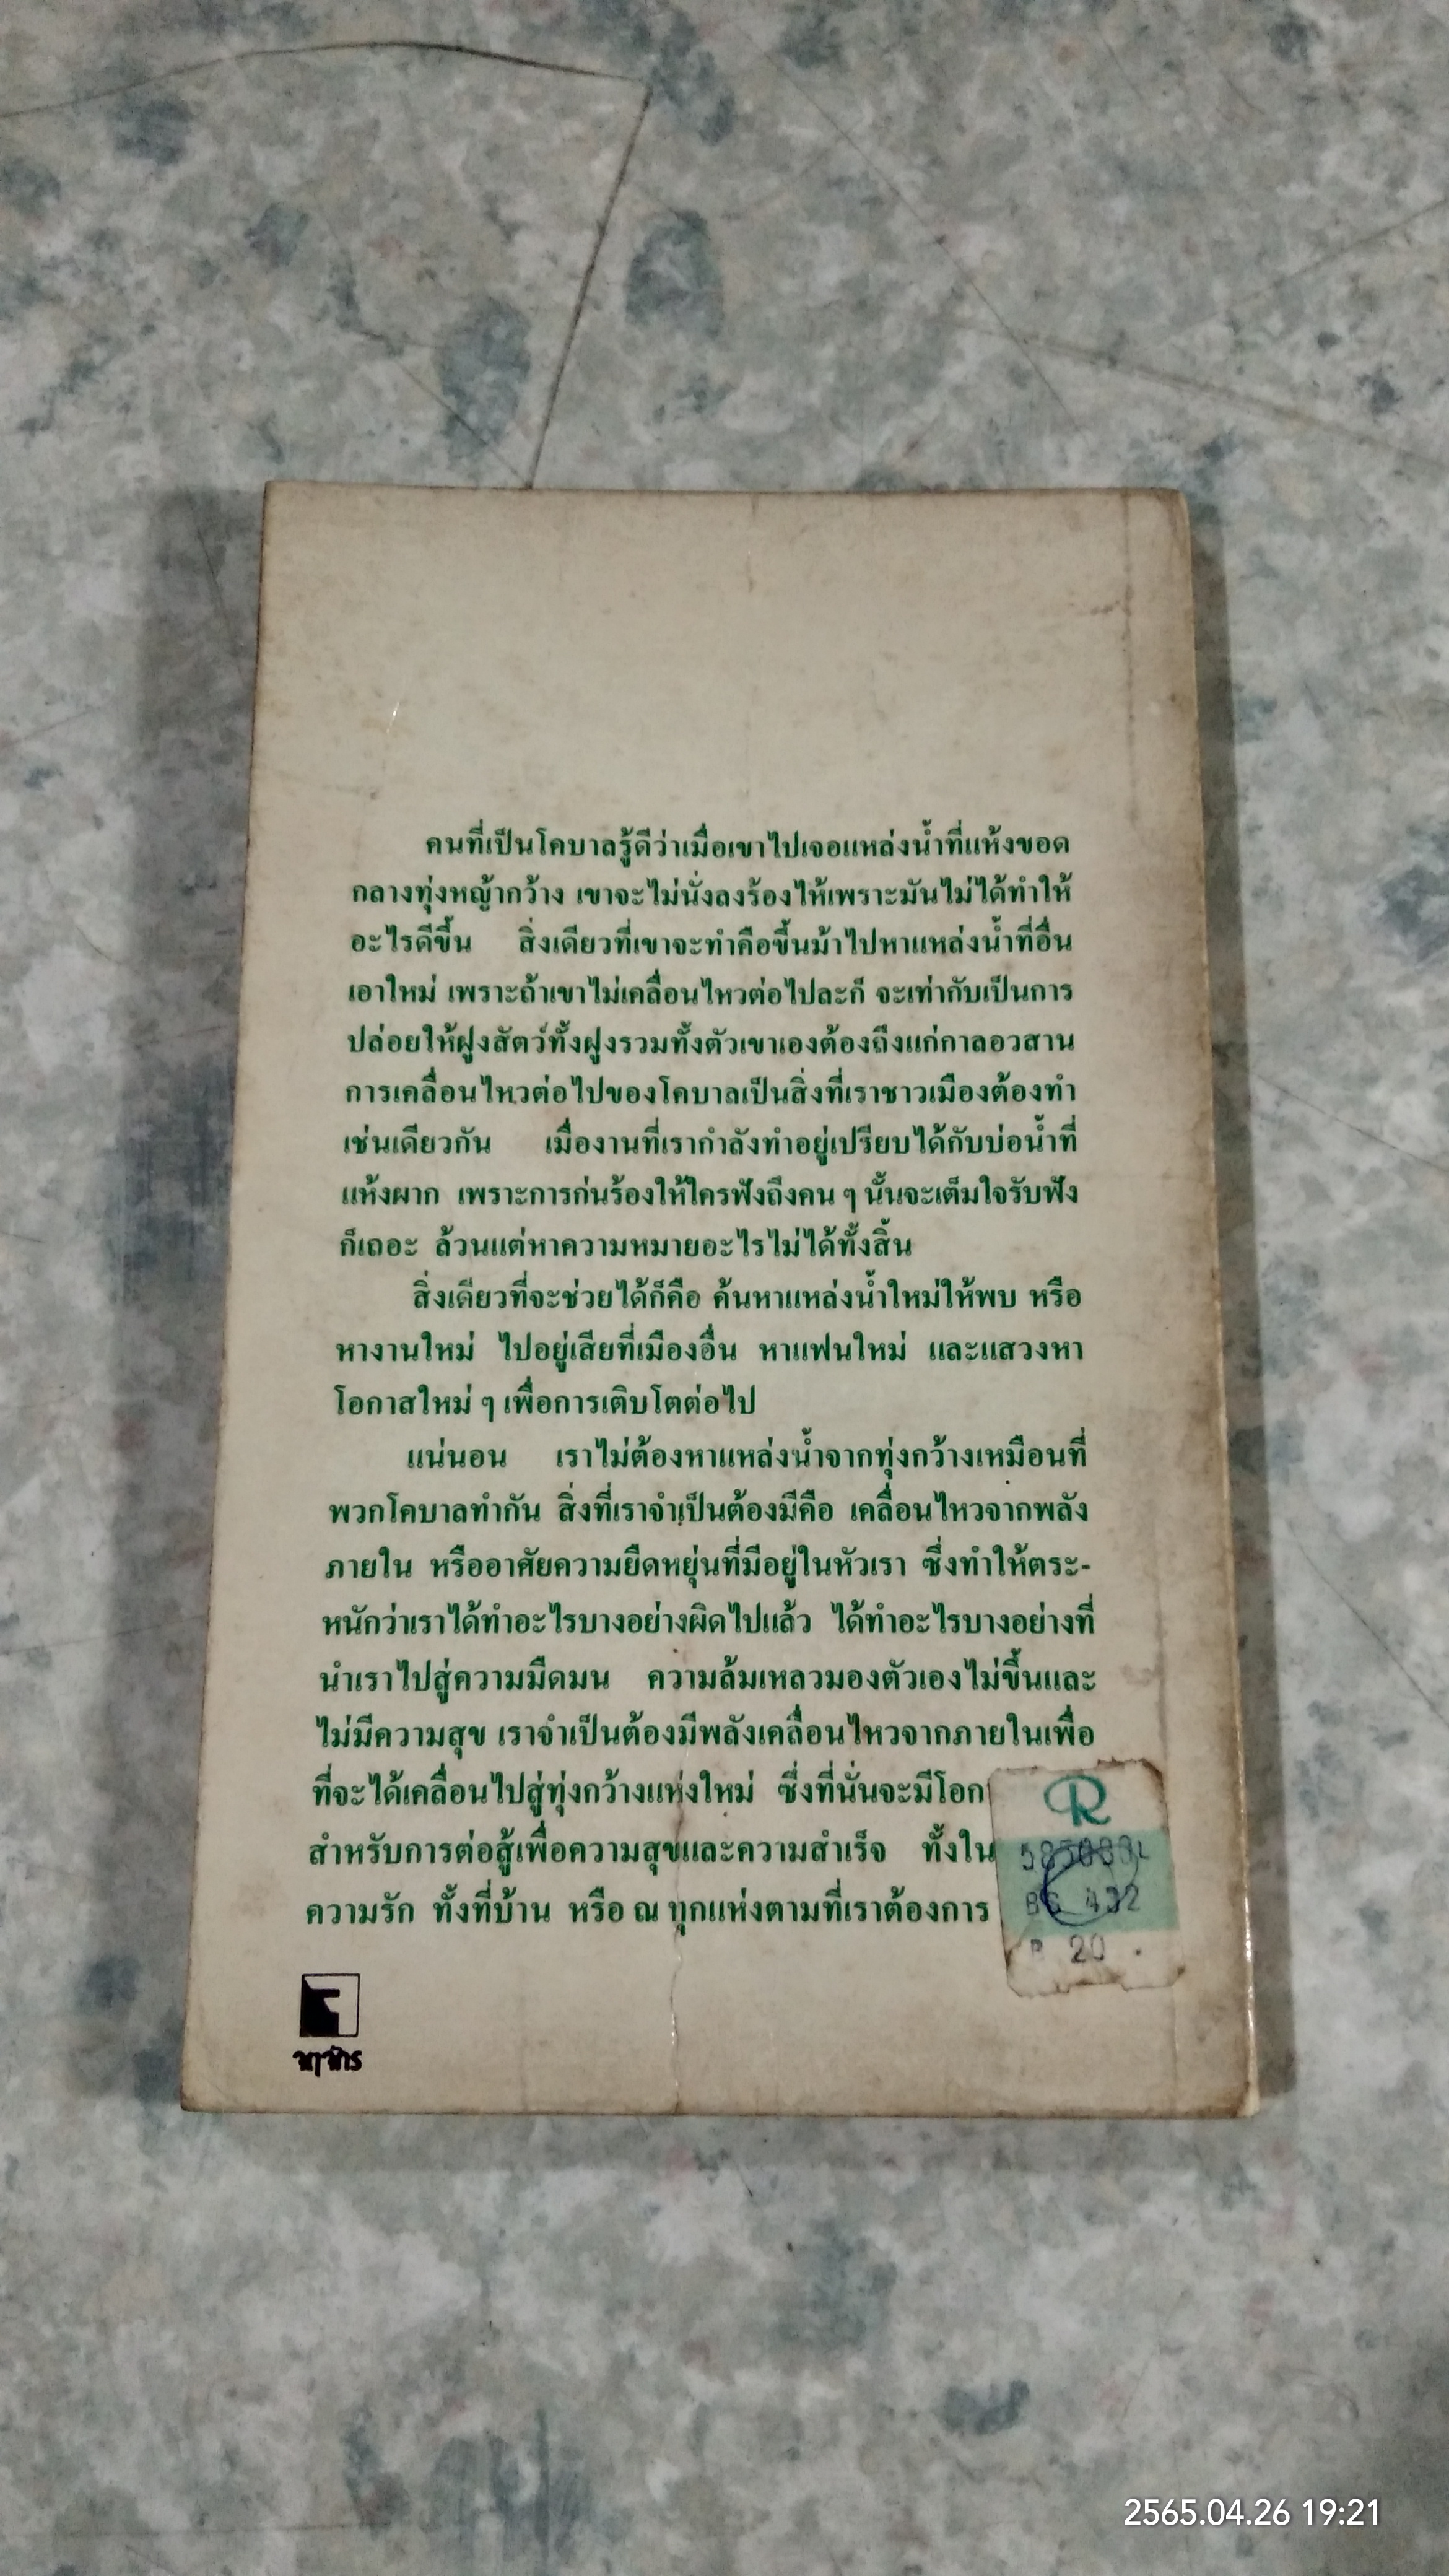 คนที่เป็นโคบาลรู้ดีว่าเมื่อเขาไปเจอแหล่งน้ำที่แห้งขอด
กลางทุ่งหญ้ากว้าง เขาจะไม่นั่งลงร้องไห้เพราะมันไม่ได้ทำให้
อะไรดีขึ้น สิ่งเดียวที่เขาจะทำคือขึ้นม้าไปหาแหล่งน้ำที่อื่น
เอาใหม่ เพราะถ้าเขาไม่เคลื่อนไหวต่อไปละก็ จะเท่ากับเป็นการ
ปล่อยให้ฝูงสัตว์ทั้งฝูงรวมทั้งตัวเขาเองต้องถึงแก่กาลอวสาน
การเคลื่อนไหวต่อไปของโคบาลเป็นสิ่งที่เราชาวเมืองต้องทำ
เช่นเดียวกัน เมื่องานที่เรากำลังทำอยู่เปรียบได้กับบ่อน้ำที่
แห้งผาก เพราะการก่นร้องให้ใครฟังถึงคน ๆ นั้นจะเต็มใจรับฟัง
ก็เถอะ ล้วนแต่หาความหมายอะไรไม่ได้ทั้งสิ้น
สิ่งเดียวที่จะช่วยได้ก็คือ ค้นหาแหล่งน้ำใหม่ให้พบ หรือ
หางานใหม่ ไปอยู่เสียที่เมืองอื่น หาแฟนใหม่ และแสวงหา
โอกาสใหม่ ๆ เพื่อการเติบโตต่อไป
แน่นอน เราไม่ต้องหาแหล่งน้ำจากทุ่งกว้างเหมือนที่
พวกโคบาลทำกัน สิ่งที่เราจำเป็นต้องมีคือ เคลื่อนไหวจากพลัง
ภายใน หรืออาศัยความยืดหยุ่นที่มีอยู่ในหัวเรา ซึ่งทำให้ตระ-
หนักว่าเราได้ทำอะไรบางอย่างผิดไปแล้ว ได้ทำอะไรบางอย่างที่
นำเราไปสู่ความมืดมน ความล้มเหลวมองตัวเองไม่ขึ้นและ
ไม่มีความสุข เราจำเป็นต้องมีพลังเคลื่อนไหวจากภายในเพื่อ
ที่จะได้เคลื่อนไปสู่ทุ่งกว้างแห่งใหม่ ซึ่งที่นั่นจะมีโอก
สำหรับการต่อสู้เพื่อความสุขและความสำเร็จ ทั้งใน
ความรัก ทั้งที่บ้าน หรือ ณ ทุกแห่งตามที่เราต้องการ
R
20
2565.04.26 19:21